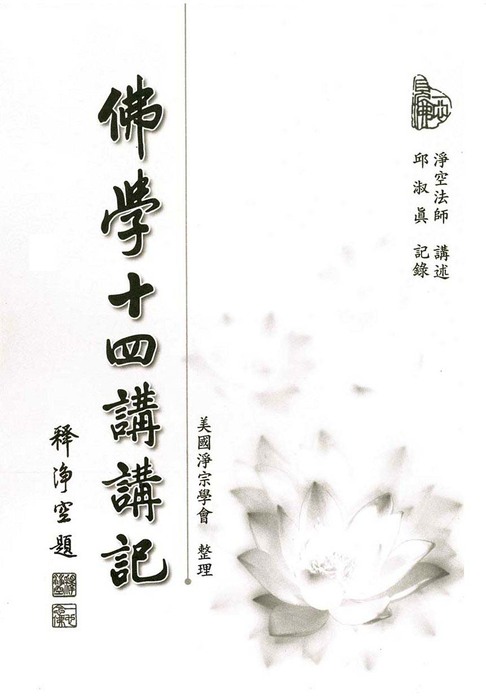 淨空法師 講述
邱淑眞 記錄
美國淨宗學會 整理
佛學十四講講記
釋淨空題